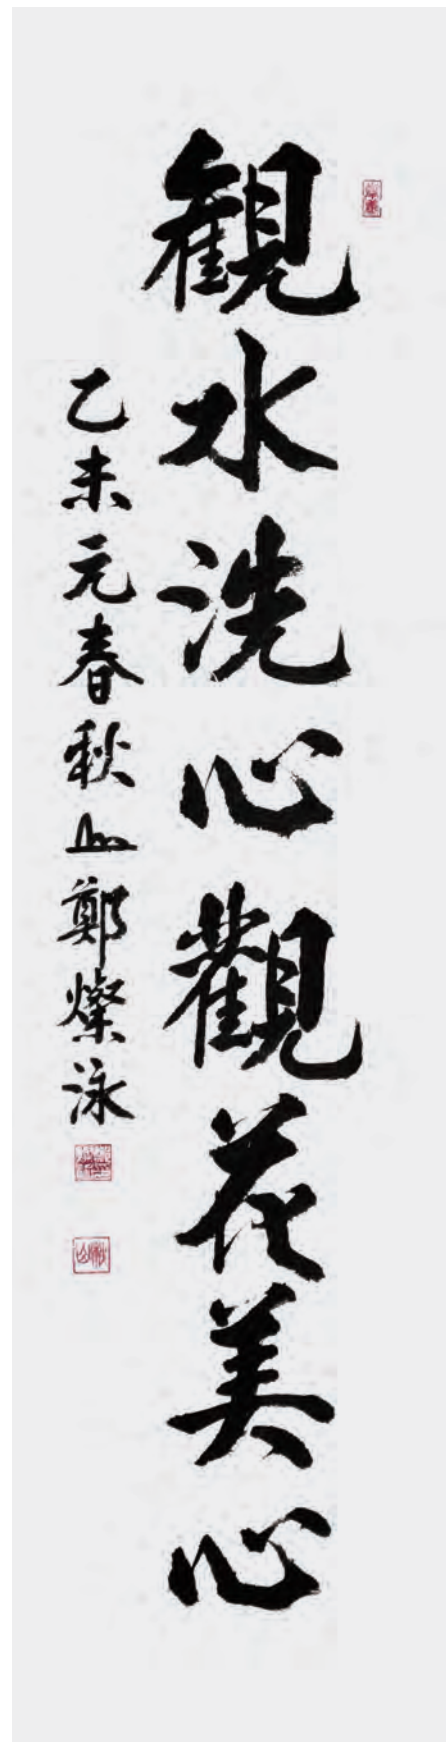 観水洗心觀花美心
乙未元春秋山鄭燦泳